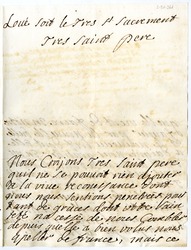 Loué soit le tres st sacrement
Tres saint pere
Nous Croions tres saint pere
quil ne se pouvoit rien ajouter
a la vive reconnoissance dont
nous nous sentions penetrés pour
tant de graces dont votre sain
teté na cessé de nous Combler
depuis quelle a bien voulu nous
apeller de france, mais ce